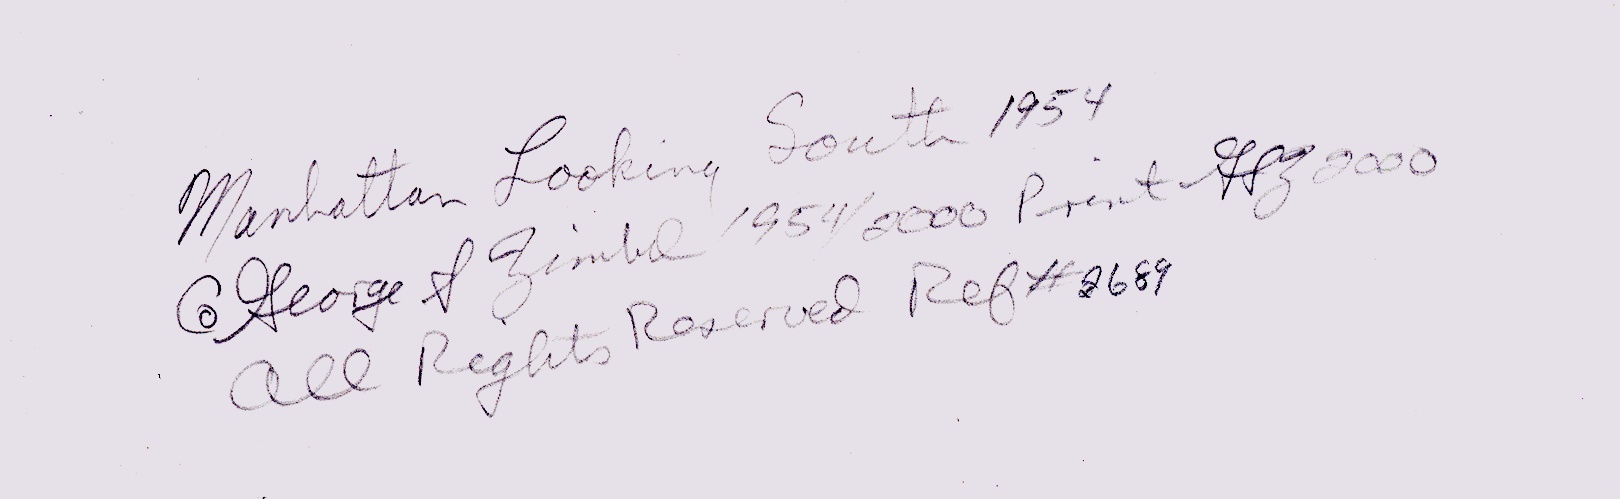 Manhattan Looking South 1954
© George S Zimbel 1954/2000 Print GSZ 2000
All Rights Reserved Ref # 2689